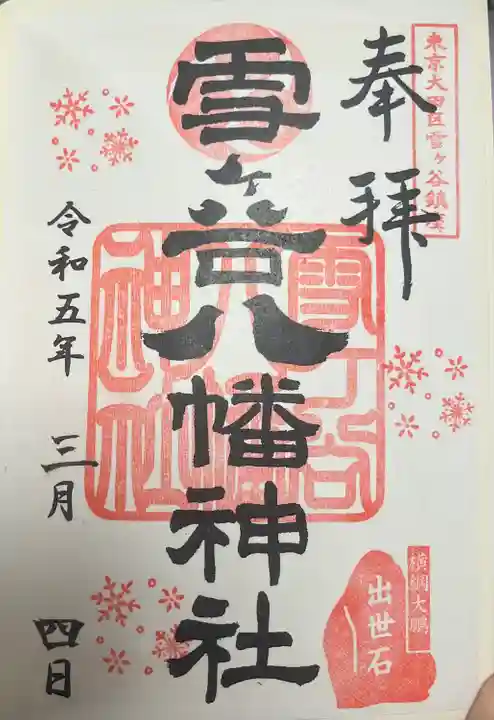 東京大田区雪ヶ谷鎮座
奉拝
雪ヶ谷八幡神社
雪ヶ谷八幡神社
横綱大鵬
出世石
令和五年 三月 四日